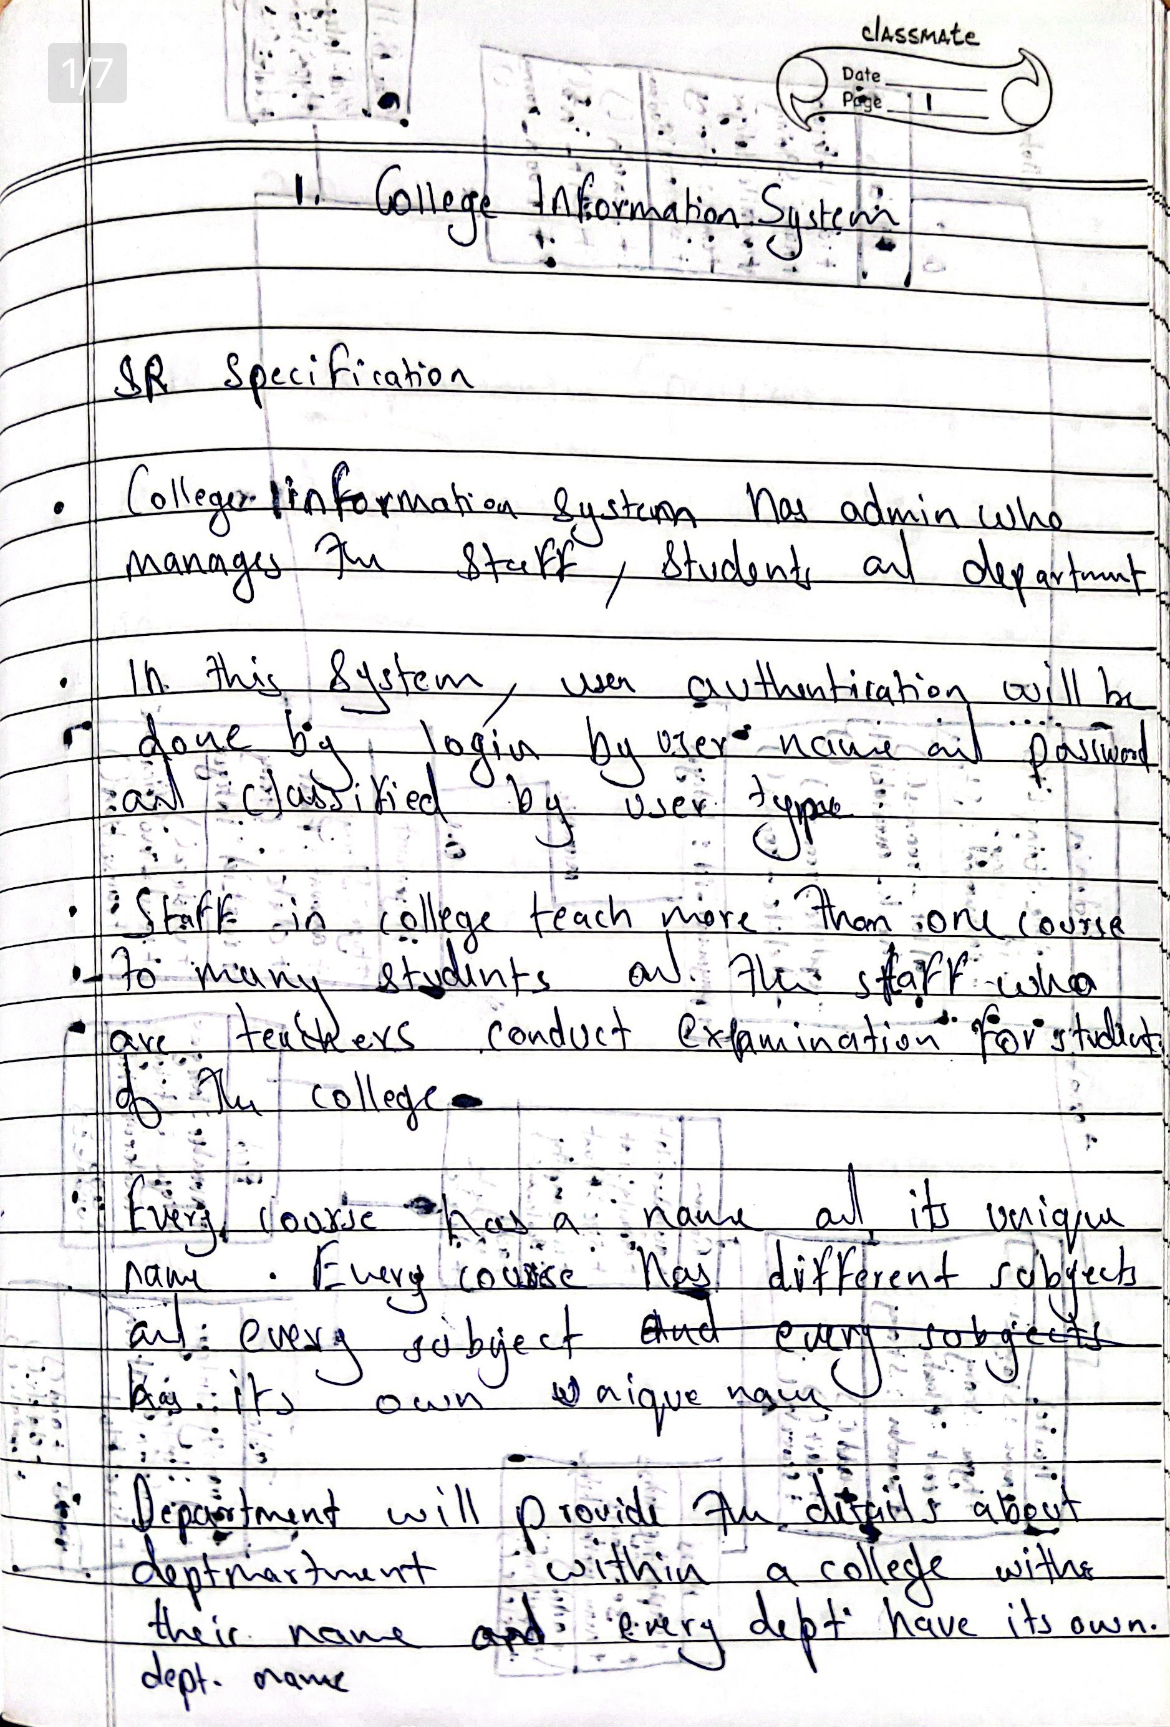 1/7
classmate
Date
Page 1
1. College Information System
SR Specification
College information System has admin who
manages the Staff, Students and department
In this System, user authentication will be
done by login by user name and password
and classified by user type
Staff in college teach more than one course
to many students and the staff who
are teachers conduct examination for student
of the college
Every course has a name and its unique
name . Every course has different subjects
and every subject and every subjects
has its own unique name
Department will provide the details about
deptmartment within a college withe
their name and every dept have its own.
dept. name